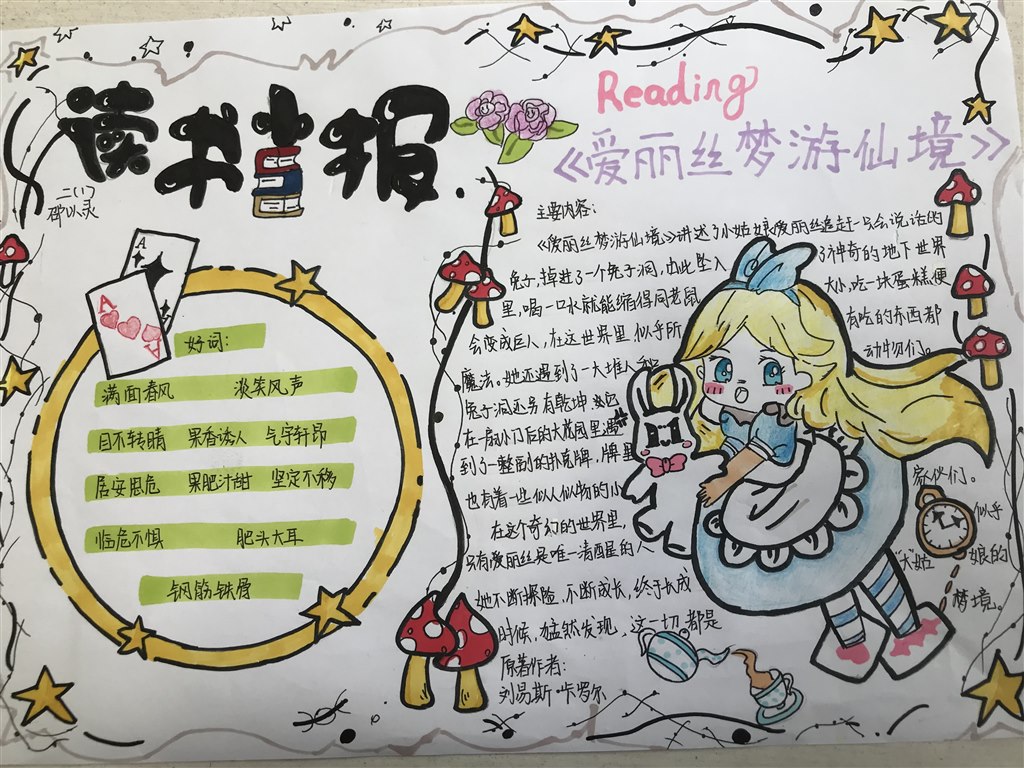 读书小报
二(1)
Reading
《爱丽丝梦游仙境》
A
A
A
好词:
满面春风 淡笑风声
目不转睛 果香诱人 气宇轩昂
居安思危 果肥汁甜 坚定不移
临危不惧 肥头大耳
钢筋铁骨
主要内容:
《爱丽丝梦游仙境》讲述了小姑娘爱丽丝追赶一只会说话的
兔子,掉进了一个兔子洞,由此坠入了神奇的地下世界
里,喝一口水就能缩得同老鼠大小,吃一块蛋糕便
会变成巨人,在这世界里,似乎所有吃的东西都
动物们。
魔法。她还遇到了一大堆人
兔子洞还另有乾坤,她
在一扇小门后的大花园里遇
到了一整副的扑克牌,牌里
也有着一些似人似物的小家伙们。
在这个奇幻的世界里,似乎
只有爱丽丝是唯一清醒的人
她不断探险,不断成长,终于长成大姑娘的
时候,猛然发现,这一切都是梦境。
原著作者:
刘易斯·卡罗尔